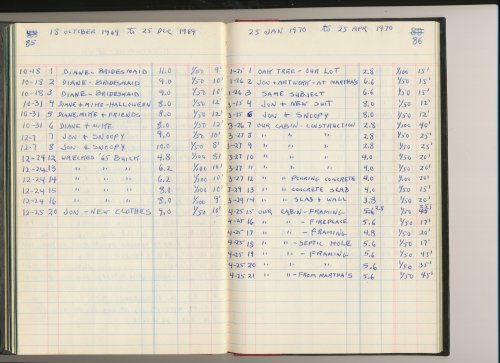 18 OCTOBER 1969 to 25 DEC 1969
85
10-18 1 DIANE - BRIDESMAID 11.0 1/50 9'
10-18 2 DIANE - BRIDESMAID 9.0 1/50 10'
10-18 3 DIANE - BRIDESMAID 8.0 1/50 12'
10-31 4 DIANE + MIKE - HALLOWEEN 8.0 1/50 12'
10-31 5 DIANE, MIKE + FRIENDS 8.0 1/50 12'
10-31 6 DIANE + MIKE 8.0 1/50 12'
12-7 7 JON & SNOOPY 9.0 1/50 10'
12-7 8 JON & SNOOPY 10.0 1/50 8'
12-24 12 WRECKED '65 BUICK 4.8 1/100 81
12-24 13 " " " 6.2 1/100 10'
12-24 14 " " " 6.2 1/100 10'
12-24 15 " " " 8.0 1/100 10'
12-24 16 " " " 8.0 1/100 9'
12-25 20 JON - NEW CLOTHES 9.0 1/50 10'
25 JAN 1970 to 25 APR 1970
86
1-25 1 OAK TREE - OUR LOT 2.8 1/100 15'
1-26 2 JON + ARTWORK - AT MARTHA'S 6.6 1/50 15'
1-26 3 SAME SUBJECT 6.6 1/50 15'
3-15 4 JON + NEW SUIT 8.0 1/50 12'
3-15 5 JON & SNOOPY 8.0 1/50 12'
3-26 7 OUR CABIN - CONSTRUCTION 2.8 1/100 40'
3-27 8 " " " 2.8 1/50 25'
3-27 9 " " " 2.8 1/50 25'
3-27 10 " " " 4.0 1/50 20'
3-27 11 " " " 4.0 1/50 20'
3-27 12 " " " POURING CONCRETE 4.0 1/100 20'
3-29 13 " " " CONCRETE SLAB 4.0 1/50 25'
3-29 14 " " " SLAB & WALL 3.8 1/50 20'
4-25 15 OUR CABIN - FRAMING 1/50
4-25 16 " " - FIREPLACE 5.6 1/50 17'
4-25 17 " " - FRAMING 4.8 1/50 20'
4-25 18 " " - SEPTIC HOLE 5.6 1/50 17'
4-25 19 " " - FRAMING 5.6 1/50 45'
4-25 20 " " " 5.6 1/50 35'
4-25 21 " " - FROM MARTHA'S 5.6 1/50 45'